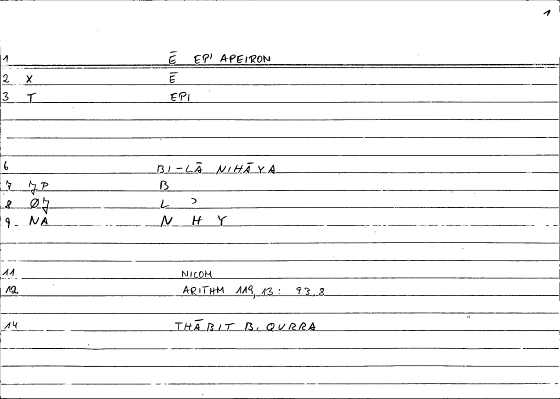 1
1 Ē EPI APEIRON
2 X Ē
3 T EPI
6 BI-LĀ NIHĀYA
B
8 L ʾ
9. NA N H Y
11 NICOM
12 ARITHM 119,13: 93,8
14 THĀBIT B. QURRA